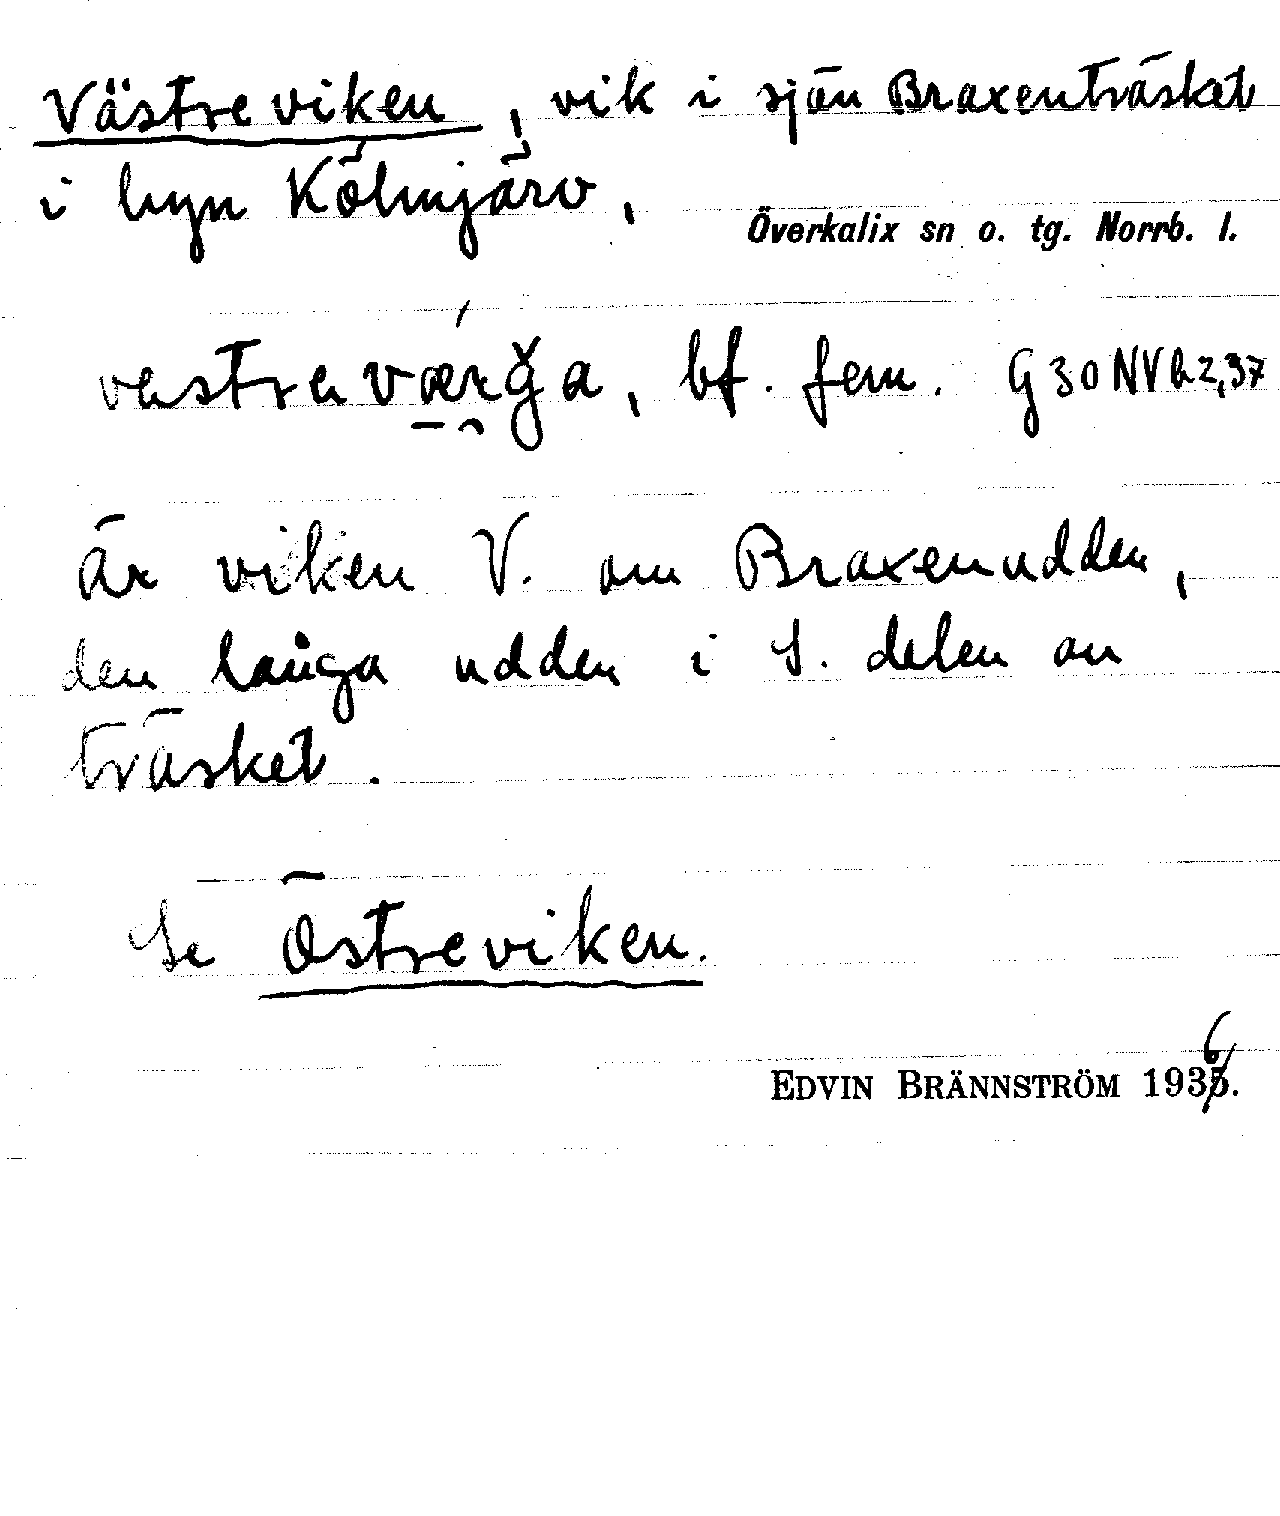 Västreviken, vik i sjön Braxenträsket
i byn Kölmjärv,
Överkalix sn o. tg. Norrb. l.
vestrevæʀğa, bf. fem. G30NVb2,37
Är viken V. om Braxenudden,
den långa udden i S. delen av
träsket.
Se Östreviken.
EDVIN BRÄNNSTRÖM 1936.